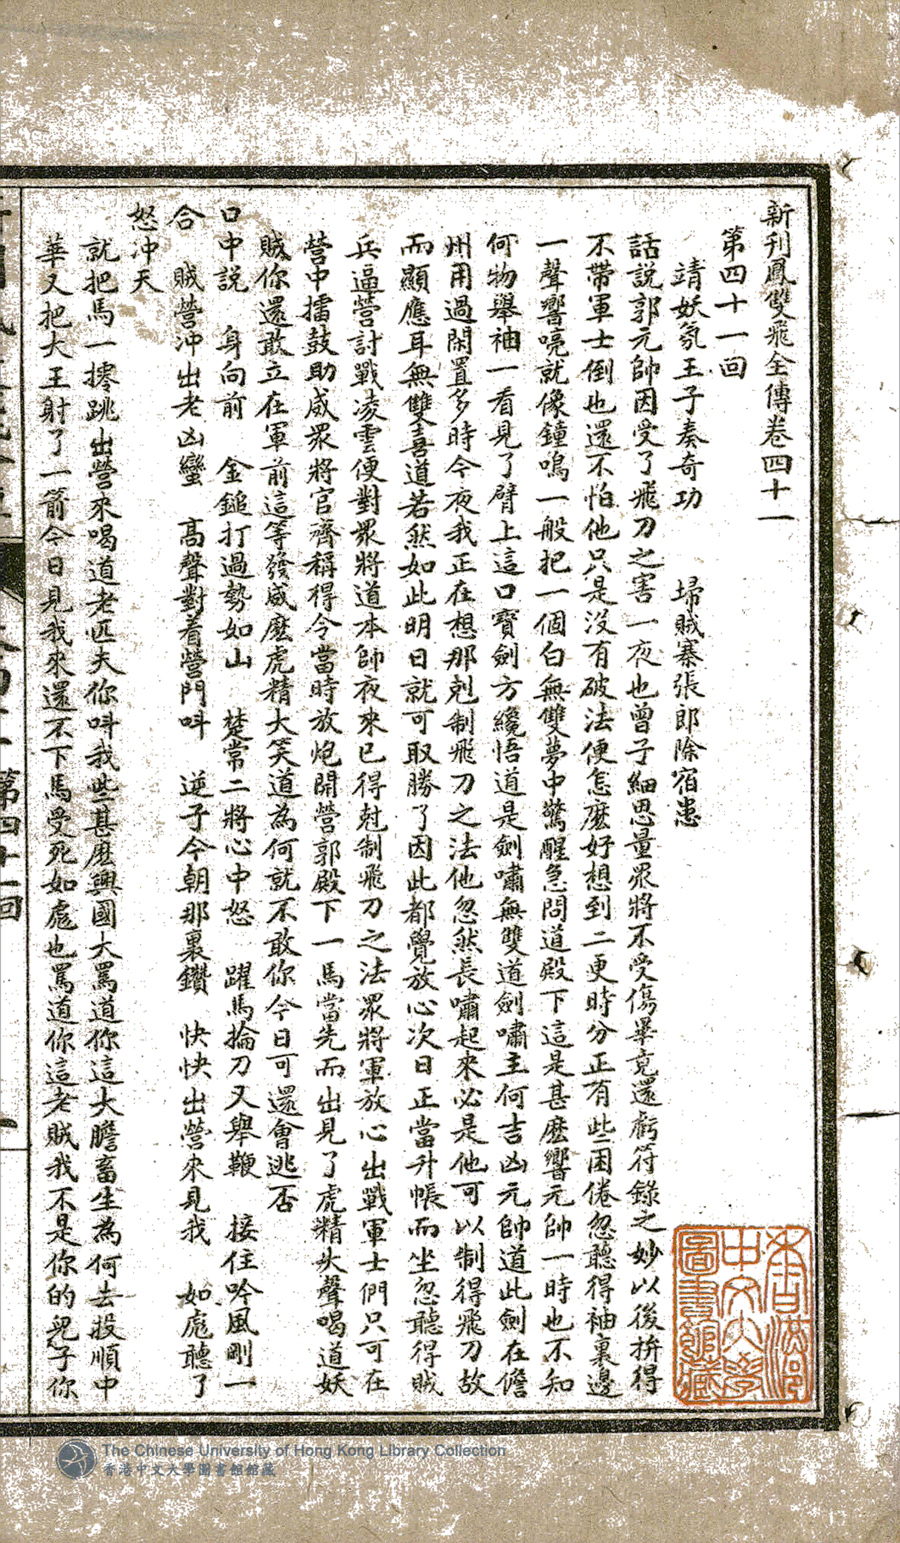 新刊鳳雙飛全傳卷四十一
第四十一回
靖妖氛王子奏奇功　掃賊寨張郎除宿患
話說郭元帥因受了飛刀之害一夜也曾子細思量眾將不受傷畢竟還虧符錄之妙以後拚得
不帶軍士倒也還不怕他只是沒有破法便怎麽好想到二更時分正有些困倦忽聽得袖裏邊
一聲響喨就像鐘鳴一般把一個白無雙夢中驚醒急問道殿下這是甚麽響元帥一時也不知
何物舉袖一看見了臂上這口寶劍方纔悟道是劍嘯無雙道劍嘯主何吉凶元帥道此劍在儋
州用過閑置多時今夜我正在想那剋制飛刀之法他忽然長嘯起來必是他可以制得飛刀故
而顯應耳無雙喜道若然如此明日就可取勝了因此都覺放心次日正當升帳而坐忽聽得賊
兵逼營討戰凌雲便對眾將道本帥夜來已得尅制飛刀之法眾將軍放心出戰軍士們只可在
營中擂鼓助威眾將官齊稱得令當時放炮開營郭殿下一馬當先而出見了虎精大聲喝道妖
賊你還敢立在軍前這等發威麽虎精大笑道為何就不敢你今日可還會逃否
口中說　身向前　金鎚打過勢如山　楚常二將心中怒　躍馬掄刀又舉鞭　接住吟風剛一
合　賊營沖出老凶蠻　高聲對着營門呌　逆子今朝那裏鑽　快快出營來見我　如彪聽了
怒冲天
就把馬一㩳跳出營來喝道老匹夫你呌我些甚麽興國大罵道你這大膽畜生為何去投順中
華又把大王射了一箭今日見我來還不下馬受死如彪也罵道你這老賊我不是你的兒子你
第四十一回
香港中文大學圖書館藏
The Chinese University of Hong Kong Library Collection
香港中文大學圖書館館藏